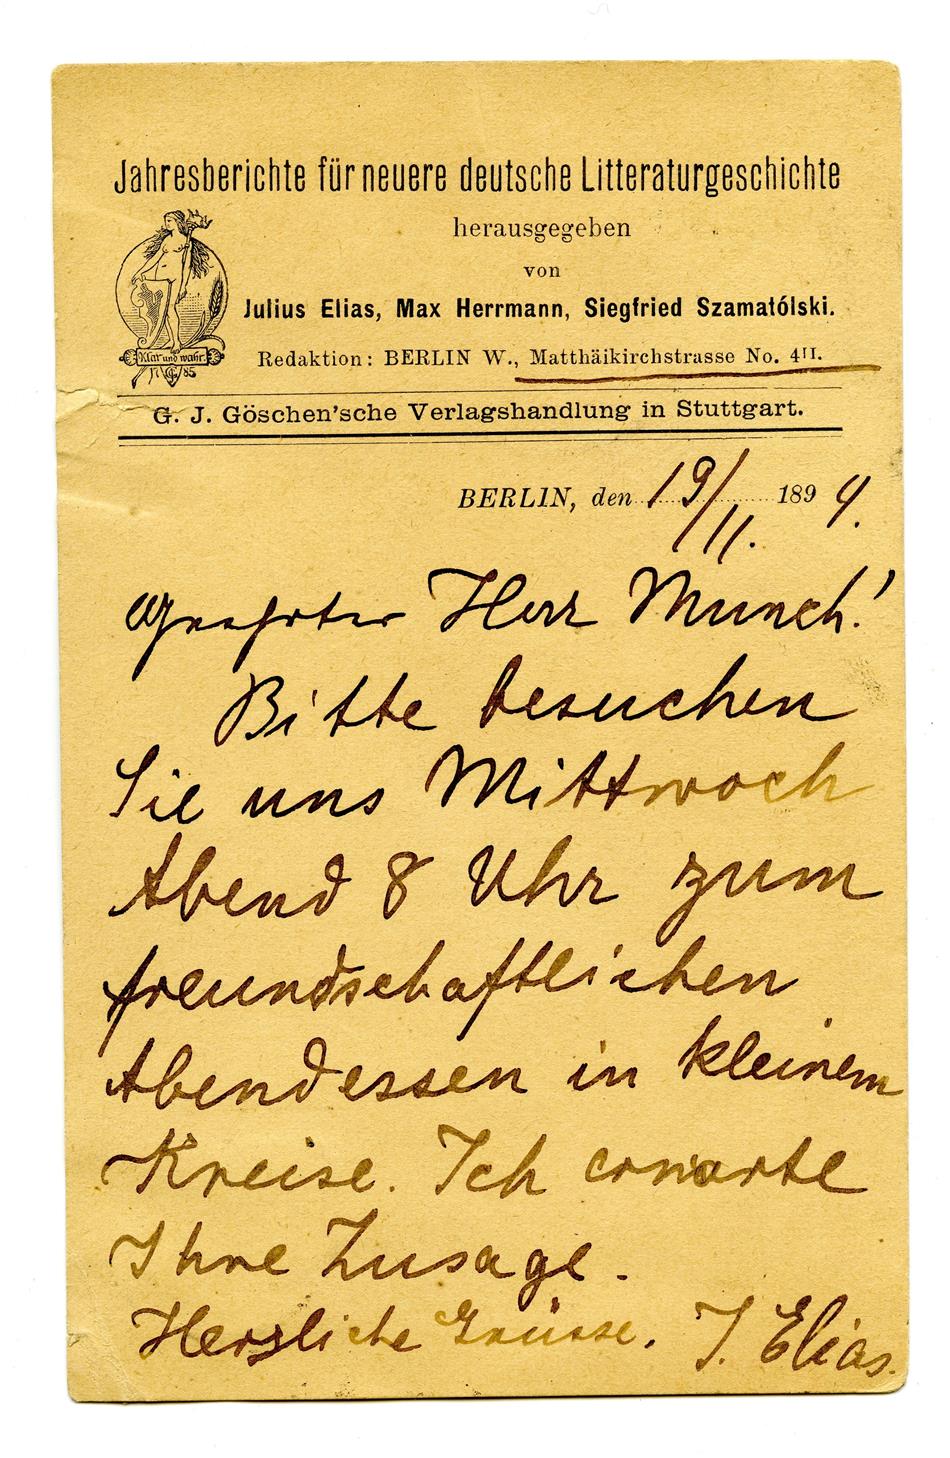 Jahresberichte für neuere deutsche Litteraturgeschichte
herausgegeben
von
Julius Elias, Max Herrmann, Siegfried Szamatólski.
Redaktion: BERLIN W., Matthäikirchstrasse No. 4II.
Klar und wahr.
18 G 85
G. J. Göschen'sche Verlagshandlung in Stuttgart.
BERLIN, den 19/11. 1894.
Geehrter Herr Munch!
Bitte besuchen
Sie uns Mittwoch
Abend 8 Uhr zum
freundschaftlichen
Abendessen in kleinem
Kreise. Ich erwarte
Ihre Zusage.
Herzliche Grüsse. J. Elias.